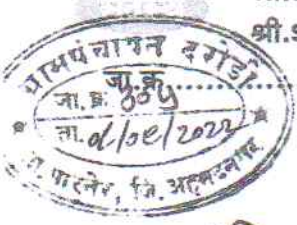 श्री.
ग्रामपंचायत दरोडी
जा.क्र.
जा. क्र. ००५
ता. /०९/२०२२
ता. पारनेर, जि. अहमदनगर